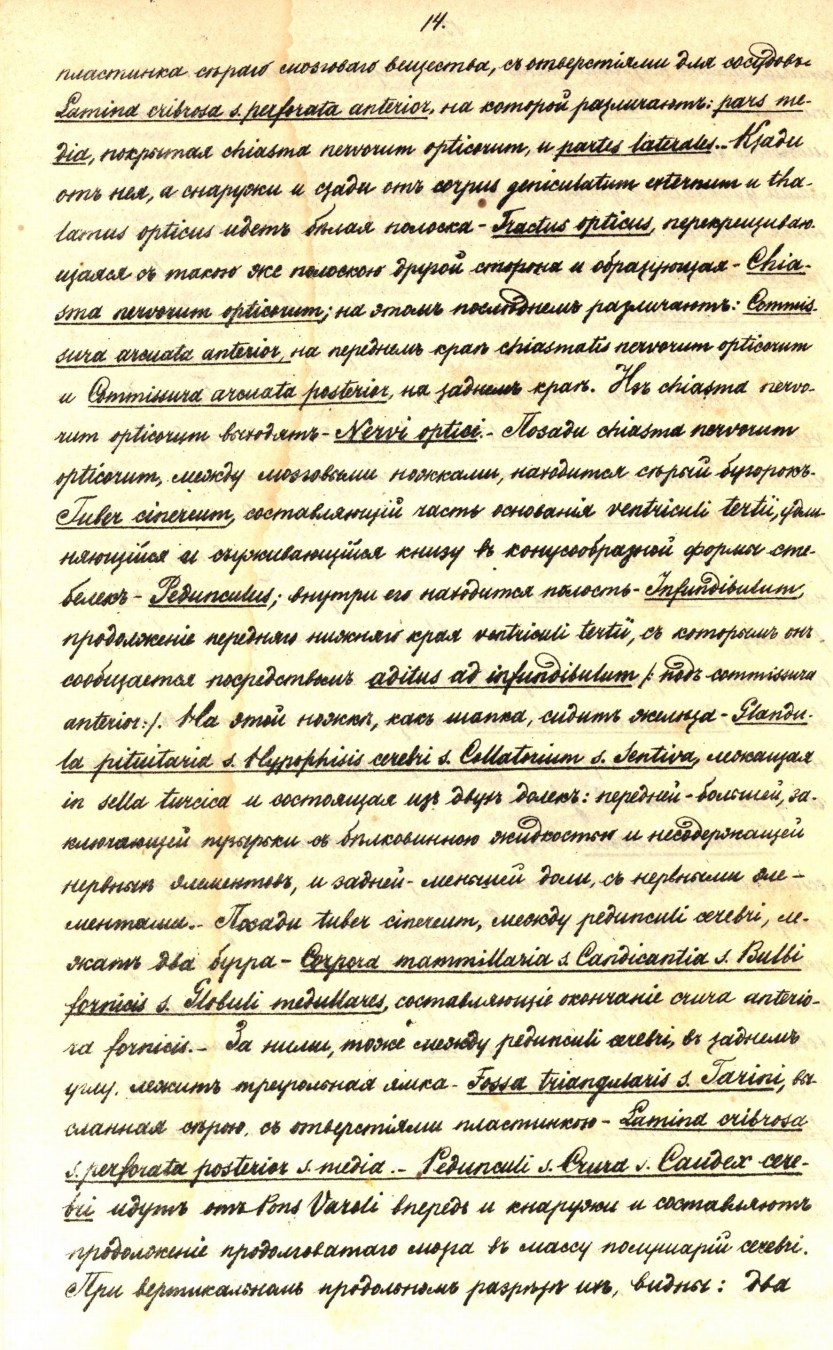 14.
пластинка сѣраго мозговаго вещества, съ отверстіями для сосудовъ-
Lamina cribrosa s. perforata anterior, на которой различаютъ: pars me-
dia, покрытая chiasma nervorum opticorum, и partes laterales.- Кзади
отъ нея, а снаружи и сзади отъ corpus geniculatum externum и tha-
lamus opticus идетъ бѣлая полоска - Tractus opticus, перекрещиваю-
щаяся съ такою же полоскою другой стороны и образующая - Chia-
sma nervorum opticorum; на этомъ послѣднемъ различаютъ: Commis-
sura arcuata anterior, на переднемъ краѣ chiasmatis nervorum opticorum
и Commissura arcuata posterior, на заднемъ краѣ. Изъ chiasma nervo-
rum opticorum выходятъ - Nervi optici.- Позади chiasma nervorum
opticorum, между мозговыми ножками, находится сѣрый бугорокъ-
Tuber cinereum, составляющій часть основанія ventriculi tertii, удли-
няющійся и съуживающійся книзу въ конусообразной формы сте-
белекъ - Pedunculus; внутри его находится полость - Infundibulum,
продолженіе передняго нижняго края ventriculi tertii, съ которымъ онъ
сообщается посредствомъ aditus ad infundibulum /: подъ commissura
anterior:/. На этой ножкѣ, какъ шапка, сидитъ железа - Glandu-
la pituitaria s. Hypophisis cerebri s. Collatorium s. Sentiva, лежащая
in sella turcica и состоящая изъ двухъ долекъ: передней - большей, за-
ключающей пузырьки съ бѣлковинною жидкостью и несодержащей
нервныхъ элементовъ, и задней - меньшей доли, съ нервными эле-
ментами.- Позади tuber cinereum, между pedunculi cerebri, ле-
жатъ два бугра - Corpora mammillaria s. Candicantia s. Bulbi
fornicis s. Globuli medullares, составляющіе окончаніе crura anterio-
ra fornicis.- За ними, тоже между pedunculi cerebri, въ заднемъ
углу, лежитъ треугольная ямка - Fossa triangularis s. Tarini, вы-
сланная сѣрою, съ отверстіями пластинкою - Lamina cribrosa
s. perforata posterior s. media.- Pedunculi s. Crura s. Caudex cere-
bri идутъ отъ Pons Varoli впередъ и кнаружи и составляютъ
продолженіе продолговатаго мозга въ массу полушарій cerebri.
При вертикальномъ продольномъ разрѣзѣ ихъ, видны: два